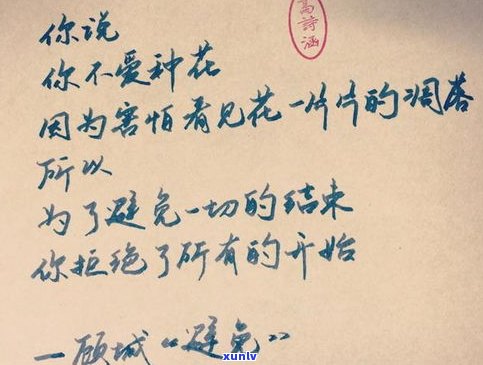 你说
你不爱种花
因为害怕看见花一片片的凋落
所以
为了避免一切的结束
你拒绝了所有的开始
一顾城《避免》
高詩涵
xunlv